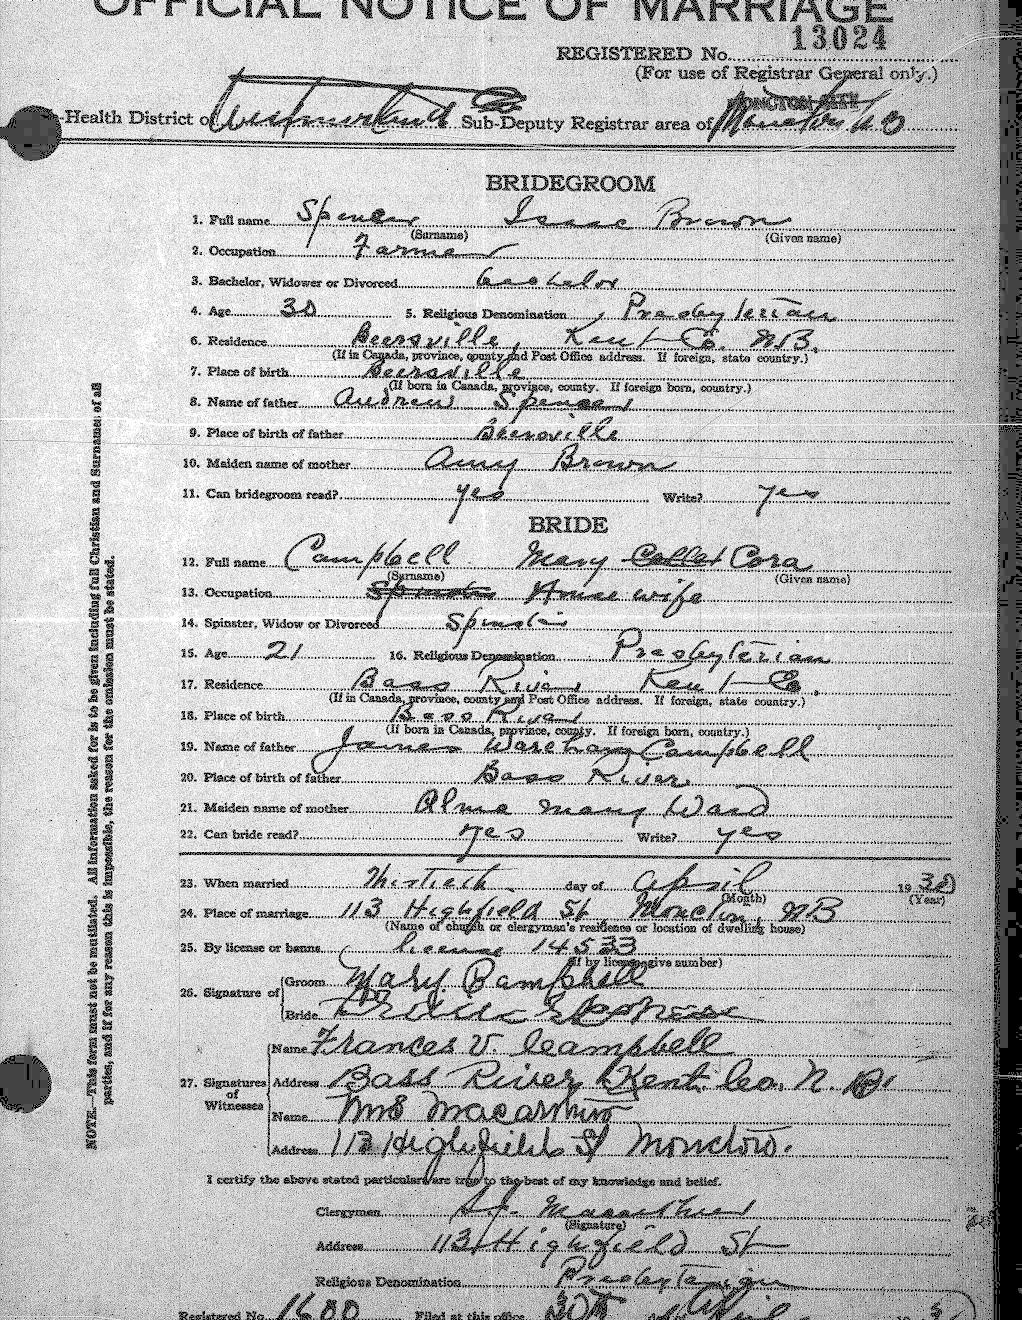 OFFICIAL NOTICE OF MARRIAGE
13024
REGISTERED No.
(For use of Registrar General only.)
MONCTON CITY
-Health District of Westmorland Sub-Deputy Registrar area of Moncton N B
BRIDEGROOM
1. Full name Spencer Isaac Brown
(Surname) (Given name)
2. Occupation Farmer
3. Bachelor, Widower or Divorced bachelor
4. Age 30 5. Religious Denomination Presbyterian
6. Residence Beersville, Kent Co. N.B.
(If in Canada, province, county and Post Office address. If foreign, state country.)
7. Place of birth Beersville
(If born in Canada, province, county. If foreign born, country.)
8. Name of father Andrew Spencer
9. Place of birth of father Beersville
10. Maiden name of mother Amy Brown
11. Can bridegroom read? yes Write? yes
BRIDE
12. Full name Campbell Mary Cora
(Surname) (Given name)
13. Occupation Spinster House wife
14. Spinster, Widow or Divorced Spinster
15. Age 21 16. Religious Denomination Presbyterian
17. Residence Bass River Kent Co.
(If in Canada, province, county and Post Office address. If foreign, state country.)
18. Place of birth Bass River
(If born in Canada, province, county. If foreign born, country.)
19. Name of father James Campbell
20. Place of birth of father Bass River
21. Maiden name of mother Alma Mary Ward
22. Can bride read? yes Write? yes
23. When married Thirtieth day of April 1930
(Month) (Year)
24. Place of marriage 113 Highfield St. Moncton, NB
(Name of church or clergyman's residence or location of dwelling house)
25. By license or banns license 14533
(If by license give number)
26. Signature of Groom Mary Campbell
Bride Spencer
27. Signatures of Witnesses Name Frances V. Campbell
Address Bass River, Kent. Co., N. B.
Name
Address 113 Highfield St Moncton.
I certify the above stated particulars are true to the best of my knowledge and belief.
Clergyman
(Signature)
Address 113 Highfield St
Religious Denomination Presbyterian
Registered No. 1600 Filed at this office 30th April
NOTE.—This form must not be mutilated. All information asked for is to be given including full Christian and Surnames of all
parties, and if for any reason this is impossible, the reason for the omission must be stated.